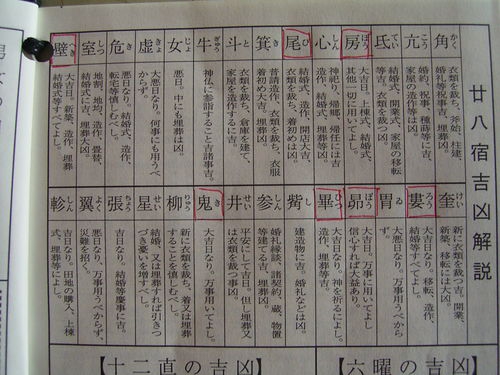 廿八宿吉凶解説
角 かく
衣類を裁ち、斧始、柱建、
亢 こう
婚約、祝事、種蒔等に吉、
氐 てい
結婚式、開業式、家屋の移転
等吉。衣類を裁つ凶。
房 ぼう
大吉日。上棟式、結婚式、
其他一切に用いてよし。
心 しん
神祭り、帰郷、帰任には吉
結婚式、造作等は凶。
尾 び
結婚式、造作、開店大吉、
衣類を裁ち、着初めは凶。
箕 き
普請造作、衣類を裁ち、衣服
着初め大吉。葬埋凶。
斗 と
衣類を裁ち、倉庫を建て、
家屋を造作するに吉。
牛 ぎゅう
神仏に参詣すること吉諸事吉。
女 じょ
悪日。中にも埋葬は凶。
虚 きょ
大悪日なり。何事にも用うべ
からず。
危 き
悪日なり。結婚式、造作、
転宅等慎しむべし。
室 しつ
地割、地均、造作、畳替、
結婚式に吉、埋葬大凶。
壁 へき
大吉日。新築、造作、埋葬
結婚式等すべてよし。
奎 けい
新に衣類を裁つ吉、開業、
新築、移転には大凶。
婁 ろう
大吉日なり。移転、造作、
結婚等すべてよし。
胃 ゐ
大悪日なり。万事用うべから
ず。
昴 ぼう
大吉日。万事に用いてよし
信心すれば大益あり。
畢 ひつ
大吉日なり。神を祈るによし。
造作、埋葬等吉。
觜 し
建造物に吉。婚礼などは凶。
参 しん
婚礼縁談、諸契約、蔵、物置
等建てる吉、埋葬凶。
井 せい
平安にして吉日。但し又
は衣類を裁つ事凶。
鬼 き
大吉日なり。万事用いてよし。
柳 りゅう
新に衣類を裁ち、着又は埋葬
することを慎しむべし。
星 せい
新に婚礼、又は埋葬すれば引きつ
づき憂いを増すべし。
張 ちょう
吉日なり。結婚等慶事に吉。
翼 よく
悪日なり、万事用うべからず、
災難を招く。
軫 しん
吉日なり。田地の購入、上棟
式、埋葬等によし。
六曜の吉凶
十二直の吉凶